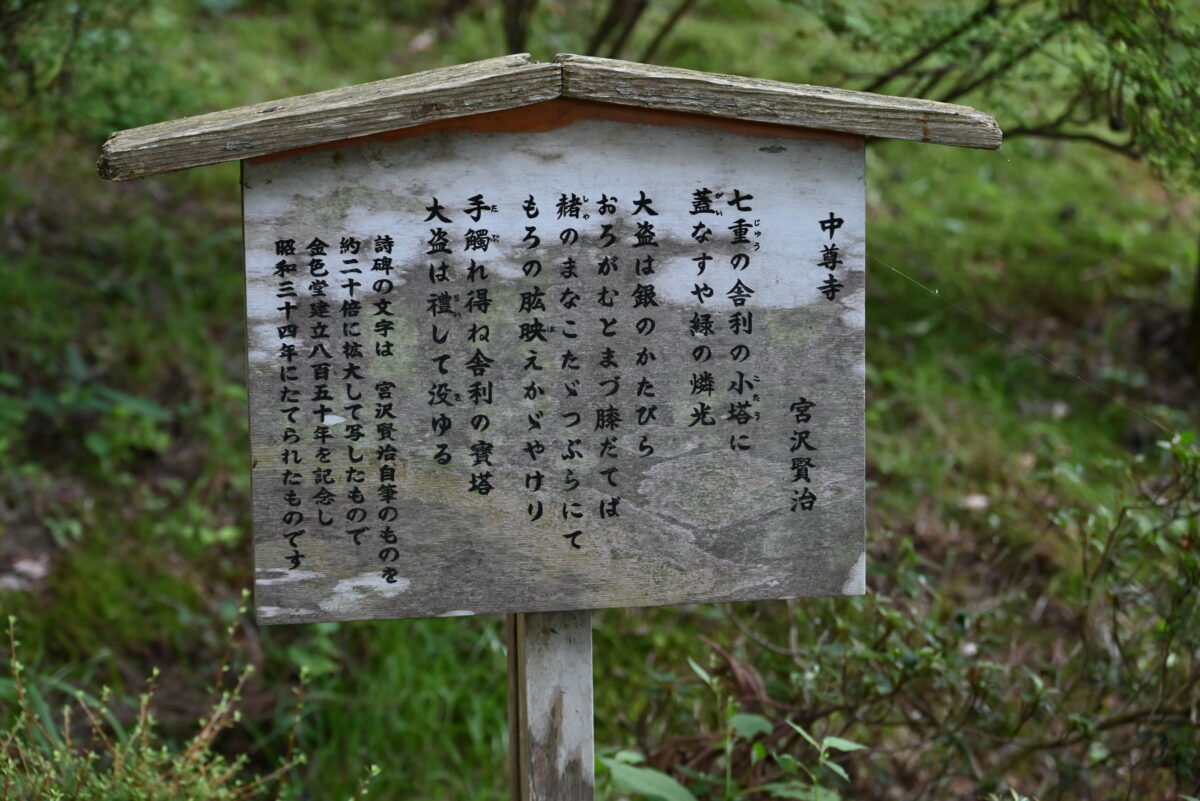 中尊寺
宮沢賢治
七重の舎利の小塔に
蓋なすや緑の燐光
大盗は銀のかたびら
おろがむとまづ膝だてば
赭のまなこたゞつぶらにて
もろの肱映えかゞやけり
手觸れ得ね舎利の寳塔
大盗は禮して没ゆる
詩碑の文字は 宮沢賢治自筆のものを
約二十倍に拡大して写したもので
金色堂建立八百五十年を記念し
昭和三十四年にたてられたものです